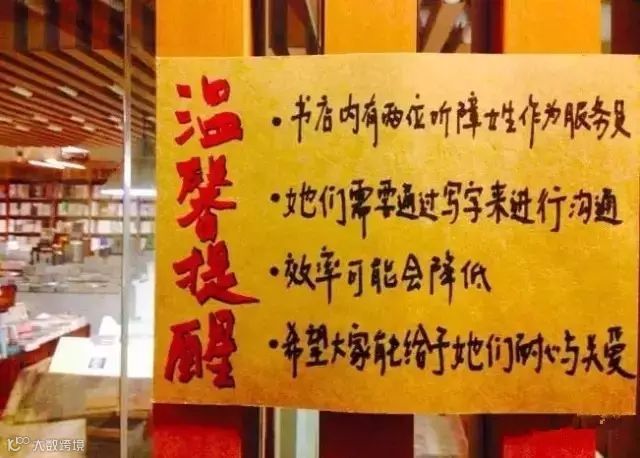 温馨提醒
·书店内有两位听障女生作为服务员
·她们需要通过写字来进行沟通
·效率可能会降低
·希望大家能给予她们耐心与关爱
大数跨境